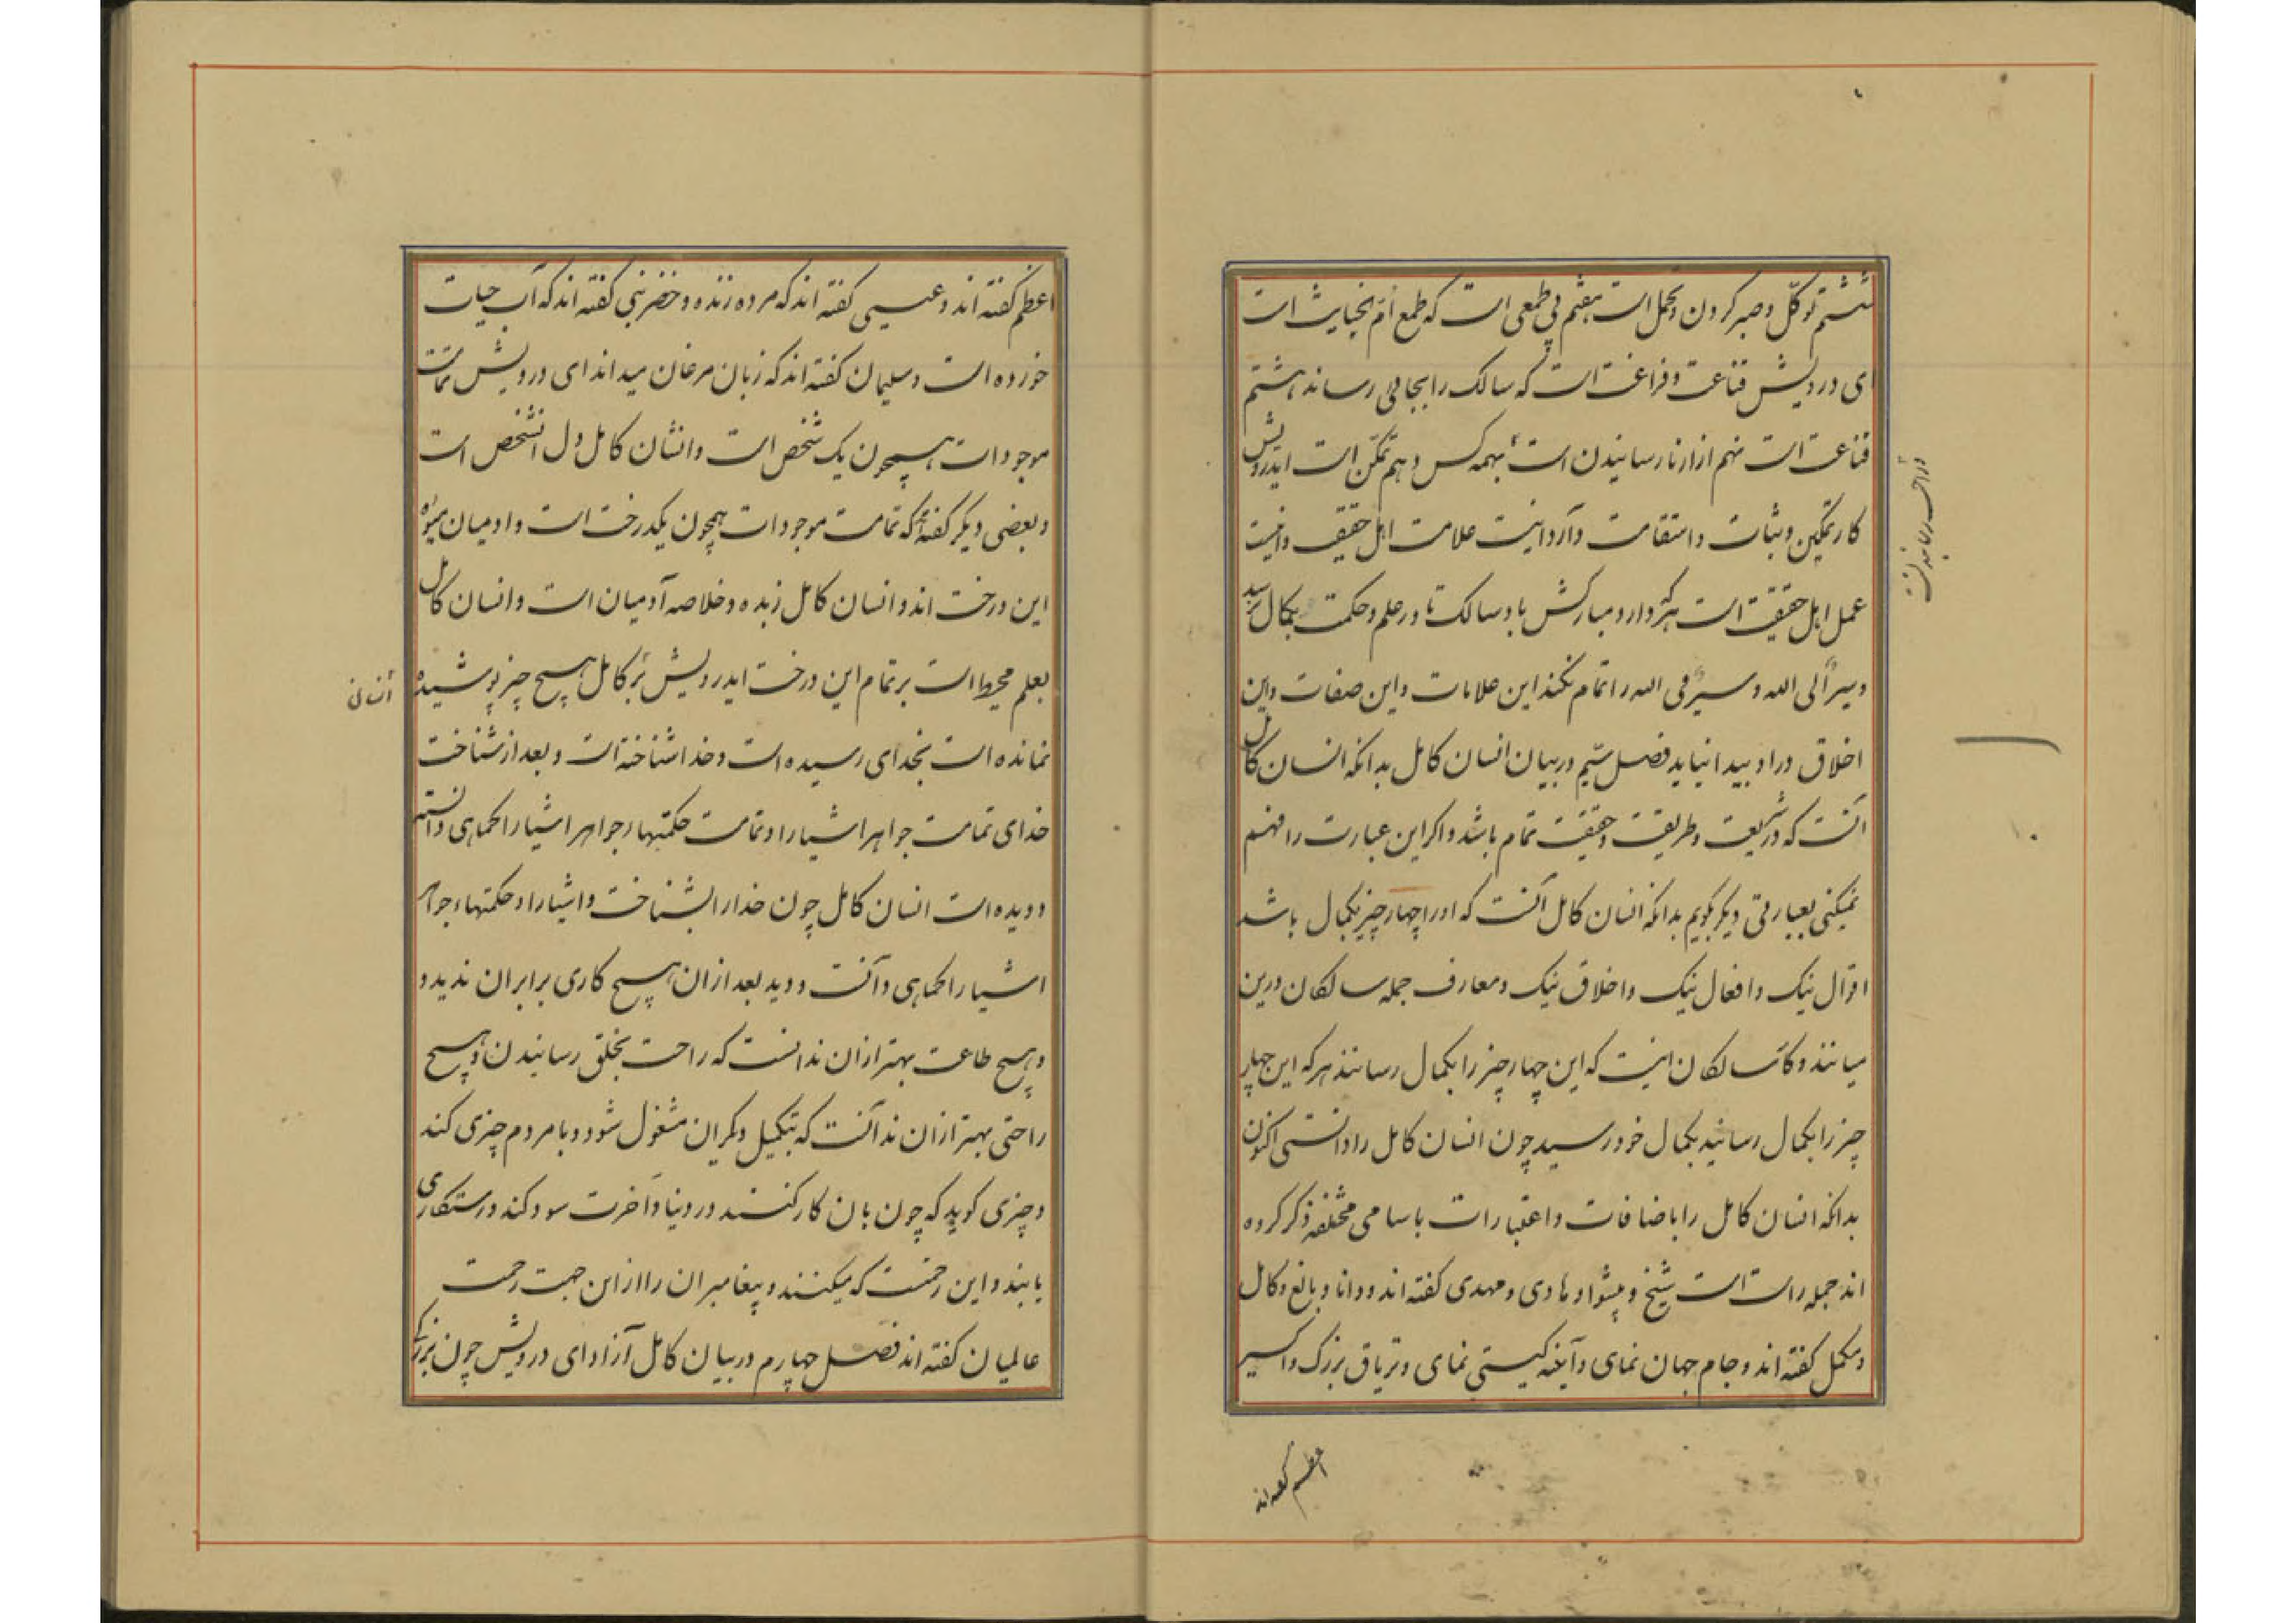 ششم توکّل و صبر کردن و تحمل است هفتم بی طمعی است که طمع امّ الخبایث است
ای درویش قناعت و فراغت است که سالک را بجائی رساند هشتم
قناعت است نهم ازار نارسانیدن است بهمه کس دهم تمکّن است ایدرویش
کار تمکین و ثبات و استقامت دارد این علامت اهل حقیقت و اینست
عمل اهل حقیقت است هرکه دارد مبارکش باد و سالک تا در علم و حکمت بکمال نرسد
و سیر الی الله و سیر فی الله را تمام نکند این علامات و این صفات و این
اخلاق در او پیدا نیاید فصل سیّم در بیان انسان کامل بدانکه انسان کامل
انست که در شریعت و طریقت و حقیقت تمام باشد و اکر این عبارت را فهم
نمیکنی بعبارتی دیکر بکویم بدانکه انسان کامل آنست که او را چهار چیز بکمال باشد
اقوال نیک و افعال نیک و اخلاق نیک و معارف جمله سالکان درین
میانند و کار سالکان اینست که این چهار چیز را بکمال رسانند هر که این چهار
چیز را بکمال رسانید بکمال خود رسید چون انسان کامل را دانستی اکنون
بدانکه انسان کامل را باضافات و اعتبارات باسامی مختلفه ذکر کرده
اند جمله راست است شیخ و پیشوا و هادی و مهدی کفته اند و دانا و بالغ و کامل
و مکمل کفته اند و جام جهان نمای و آینه کیتی نمای و تریاق بزرک و اکسیر
و راحت رسانیدن
اعظم کفته اند
اعظم کفته اند و عیسی کفته اند که مرده زنده و خضر نبی کفته اند که آب حیات
خورده است و سلیمان کفته اند که زبان مرغان میداند ای درویش تمامت
موجودات همچون یک شخص است و انسان کامل دل انشخص است
و بعضی دیکر کفته اند که تمامت موجودات همچون یکدرخت است و ادمیان میوه
این درخت اند و انسان کامل زبده و خلاصه آدمیان است و انسان کامل
بعلم محیط است بر تمام این درخت ایدرویش بر کامل هیچ چیز پوشیده
نمانده است بخدای رسیده است و خدا شناخته است و بعد از شناخت
خدای تمامت جواهر اشیا را و تمامت حکمتهاء جواهر اشیا را کماهی دانسته
و دیده است انسان کامل چون خدا را بشناخت و اشیا را و حکمتهاء جواهر
اشیا را کماهی دانست و دید بعد از ان هیچ کاری برابر ان ندید و
و هیچ طاعت بهتر از ان ندانست که راحت بخلق رسانیدن و هیچ
راحتی بهتر از ان ندانست که بتکمیل دیکران مشغول شود و با مردم چیزی کند
و چیزی کوید که چون بان کار کنند در دنیا و آخرت سود کند و رستکاری
یابند و این رحمتست که میکنند و پیغامبران را از این جهت رحمت
عالمیان کفته اند فصل چهارم در بیان کامل آزاد ای درویش چون بزرکی
انسان